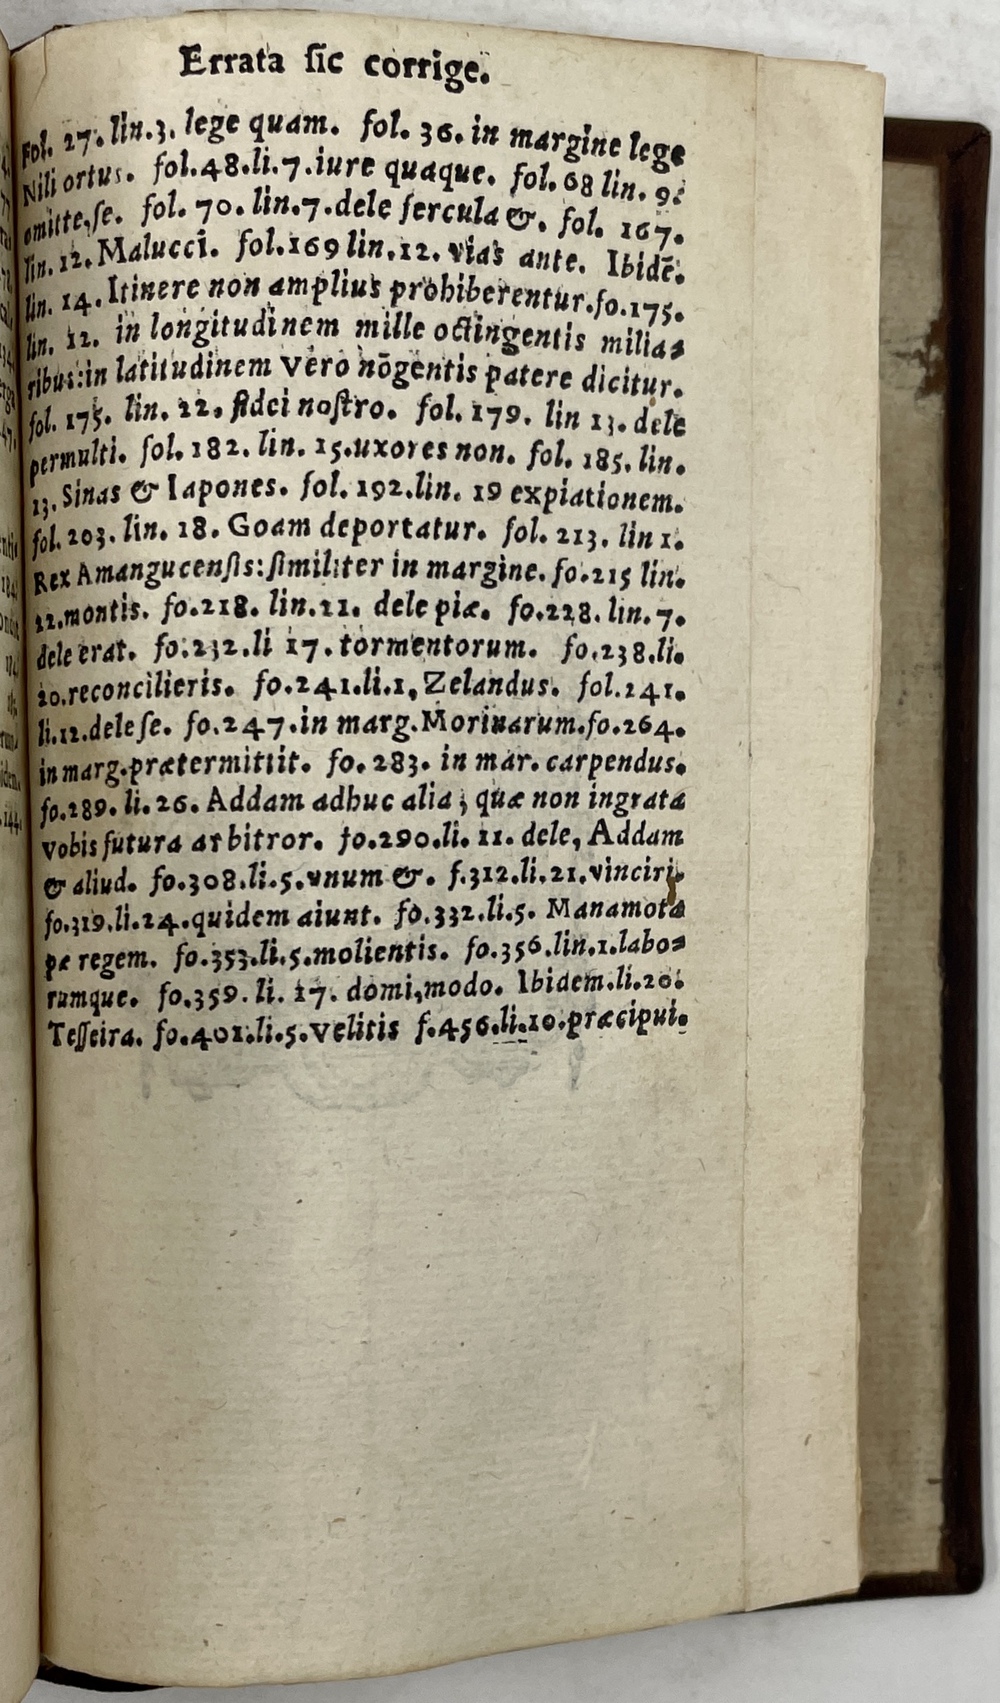 Errata ſic corrige.
Fol. 27. lin.3. lege quam. fol. 36. in margine lege
Nili ortus. fol.48.li.7.iure quaque. fol.68 lin. 9.
omitte,ſe. fol. 70. lin.7.dele fercula &. fol. 167.
lin. 12. Malucci. fol.169 lin.12. vias ante. Ibidē.
lin. 14. Itinere non amplius prohiberentur.fo.175.
lin. 12. in longitudinem mille octingentis milia⸗
ribus:in latitudinem vero nōgentis patere dicitur.
fol. 175. lin. 22. fidei noſtro. fol. 179. lin 13. dele
permulti. fol. 182. lin. 15.uxores non. fol. 185. lin.
13. Sinas & Iapones. fol. 192.lin. 19 expiationem.
fol. 203. lin. 18. Goam deportatur. fol. 213. lin 1.
Rex Amangucenſis:ſimiliter in margine. fo.215 lin.
22.montis. fo.218. lin.21. dele piæ. fo.228. lin. 7.
dele erat. fo.232.li 17. tormentorum. fo.238.li.
20.reconcilieris. fo.241.li.1, Zelandus. fol.241.
li.12.dele ſe. fo.247.in marg.Morinarum.fo.264.
in marg.prætermittit. fo. 283. in mar. carpendus.
fo.289. li. 26. Addam adhuc alia; quæ non ingrata
vobis futura arbitror. fo.290.li. 11. dele, Addam
& aliud. fo.308.li.5.vnum &. f.312.li.21.vinciri.
fo.319.li.24.quidem aiunt. fo.332.li.5. Manamota
pæ regem. fo.353.li.5.molientis. fo.356.lin.1.labo⸗
rumque. fo.359. li. 17. domi,modo. Ibidem.li.20.
Teſſeira. fo.401.li.5.velitis f.456.li.10.præcipui.